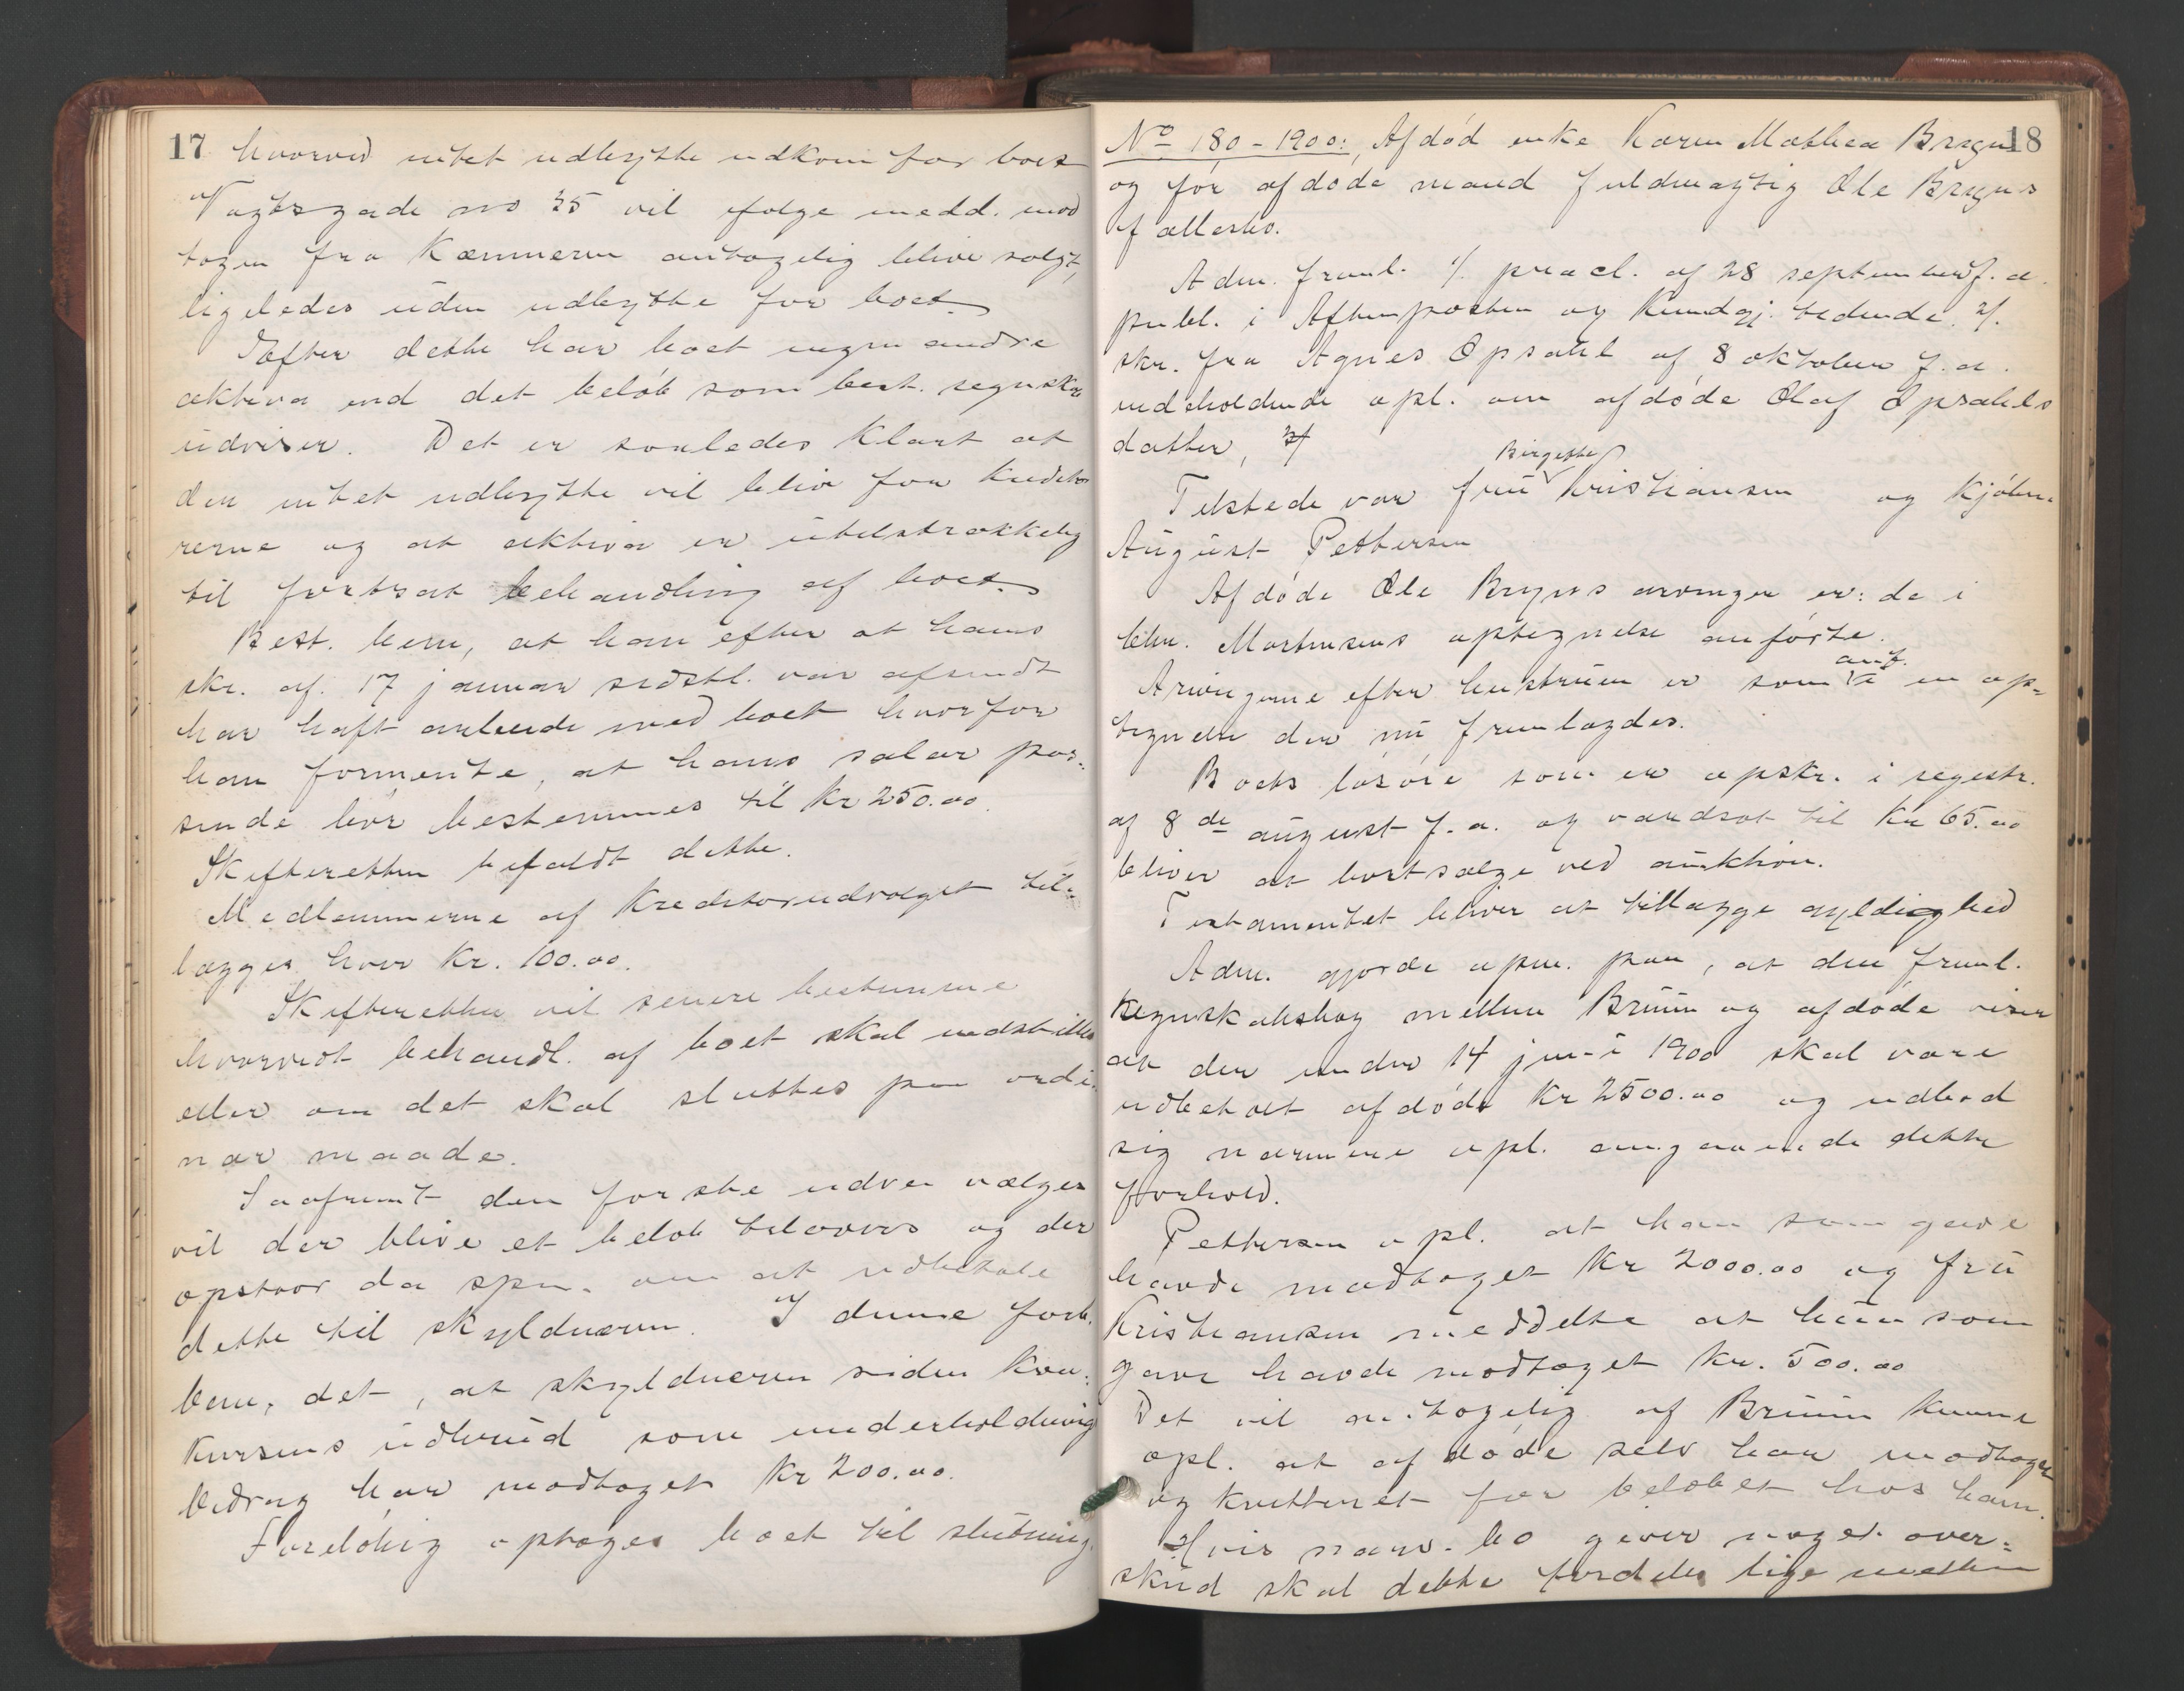 17
hvorved intet udbytte udkom for boet
Vogtsgade no 35 vil ifølge medd. mod
tagen fra Kæmneren antagelig blive solgt,
ligeledes uden udbytte for boet.
Efter dette har boet ingen andre
aktiva end det beløb som best. regnskab
udviser. Det er saaledes klart at
der intet udbytte vil blive for kredito
rerne og at aktiva er utilstrækkelig
til fortsat behandling af boet.
Best. bem, at han efter at hans
skr. af. 17 januar sidstl. var afsendt
har haft arbeide med boet hvorfor
han formente, at hans salær pas-
sende bør bestemmes til Kr 250.00.
Skifteretten bifaldt dette.
Medlemmerne af Kreditorudvalget til-
lægges hver Kr. 100.00.
Skifteretten vil senere bestemme
hvorvidt behandl. af boet skal indstilles
eller om det skal sluttes paa ordi-
nær maade.
Saafremt den første udvei vælges
vil der blive et beløb tilovers og der
opstaar da spm. om at udbetale
dette til skyldneren. I denne forb.
bem. det, at skyldneren siden kon-
kursens udbrud som underholdnings
bidrag har modtaget Kr 200.00.
Foreløbig optages boet til slutning.
18
No 180-1900: Afdød enke Karen Mathea Bryn
og før afdøde mand fuldmægtig Ole Bryns
fællesbo.
Adm. freml. 1/. procl. af 28 september f. a.
publ. i Aftenposten og Kundgj. tidende. 2/.
skr. fra Agnes Opsahl af 8 oktober f. a.
indeholdende opl. om afdøde Olaf Opsahls
datter, 3/
Birgithe
Tilstede var fru Kristiansen og kjøbm.
August Pettersen
Afdøde Ole Bryns arvinger er: de i
bem. Mortensens optegnelse anførte.
anf.
Arvingerne efter hustruen er som i en op-
tegnelse der nu fremlagdes.
Boets løsøre som er opskr. i registr.
af 8de august f. a. og værdsat til Kr 65.00
bliver at bortsælge ved auktion.
Testamentet bliver at tillægge gyldighed
Adm. gjorde opm. paa, at den freml.
Regnskabsbog mellem Bruun og afdøde viser
at der under 14 juni 1900 skal være
udbetalt afdøde Kr 2500.00 og udbad
sig nærmere opl. angaaende dette
forhold.
Pettersen opl. at han som gave
havde modtaget Kr 2000.00 og fru
Kristiansen meddelte at hun som
gave havde modtaget Kr. 500.00
Det vil antagelig af Bruun kunne
opl. at afdøde selv har modtaget
og kvitteret for beløbet hos ham.
Hvis nærv. bo giver noget over-
skud skal dette fordeles lige mellem